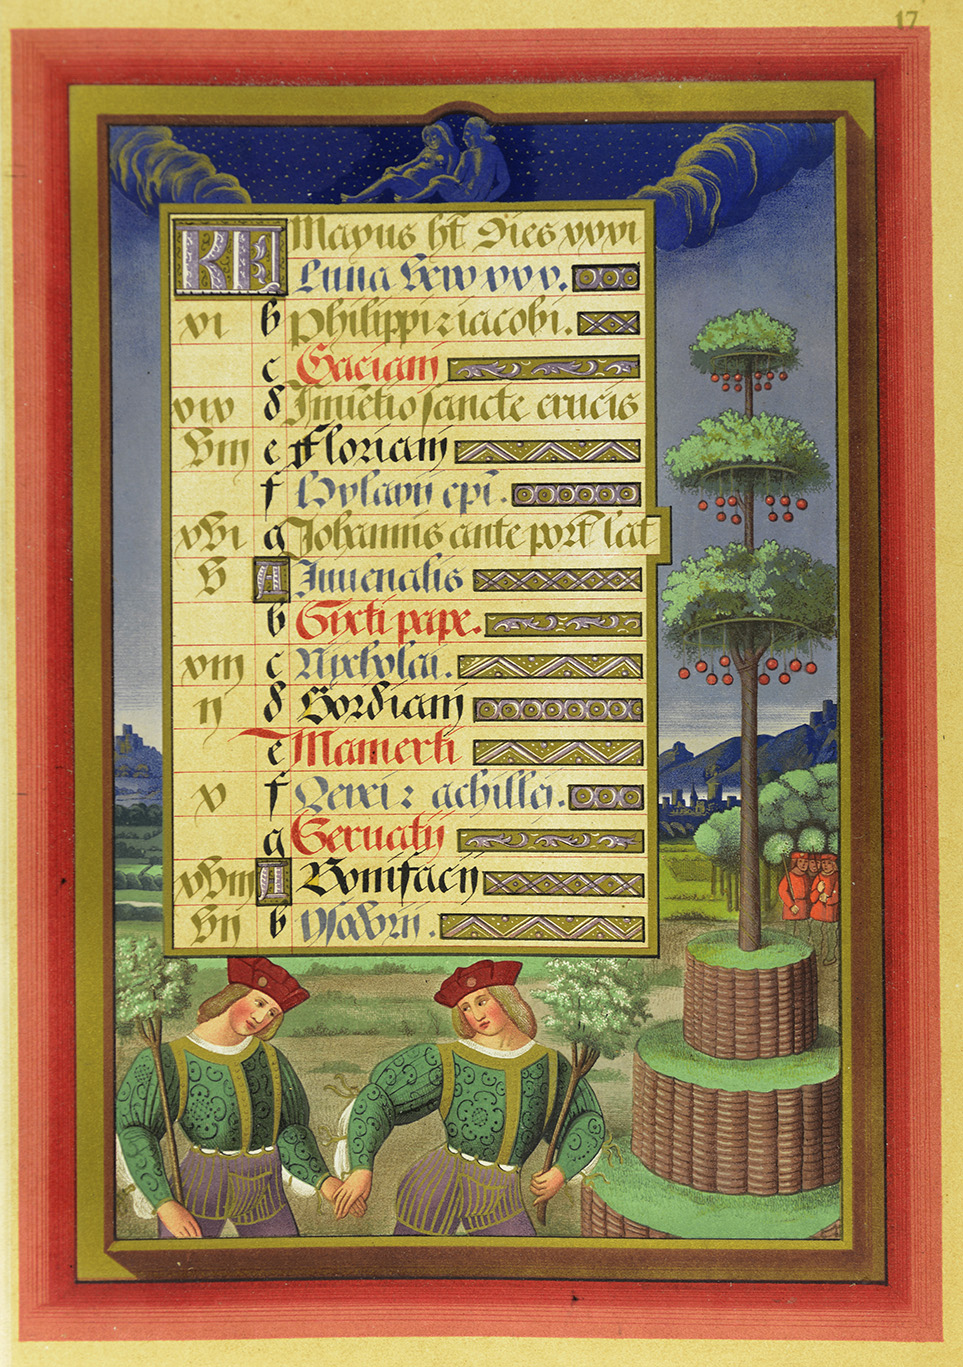 17
KL Mayus ht Dies xxxi
Luna
xi b Philippi z iacobi.
c Gaciani
xix d Inuetio sancte crucis
viii e Floriani
f Hylarii epi.
xvi g Johannis ante port lat
v A Iuuenalis
b Sixti pape.
xiii c Nicholai.
ii d Gordiani
e Mamerti
x f Nerei z achillei.
g Seruatii
xviii A Bonifacii
vii b Ysidorii.